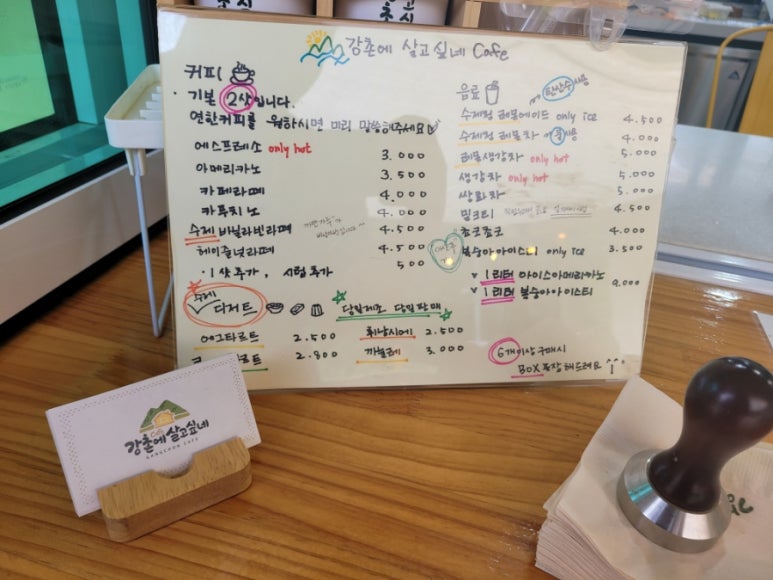 강촌에 살고싶네 Cafe
커피
· 기본 2샷입니다.
연한커피를 원하시면 미리 말씀해주세요
에스프레소 only hot 3.000
아메리카노 3.500
카페라떼 4.000
카푸치노 4.000
수제 바닐라빈라떼 4.500
헤이즐넛라떼 4.500
· 1샷추가, 시럽추가 500
수제 디저트
당일제조 당일판매
에그타르트 2.500
휘낭시에 2.500
2.800
까눌레 3.000
음료
탄산수사용
수제청 레몬에이드 only ice 4.500
수제청 레몬차 4.000
레몬생강차 only hot 5.000
생강차 only hot 5.000
쌍화차 5.000
밀크티 4.500
초코초코 4.000
복숭아아이스티 only ice 3.500
1리터 아이스아메리카노
1리터 복숭아아이스티
9.000
6개이상 구매시
BOX 포장해드려요
Cafe
강촌에 살고싶네
GANGCHON CAFE